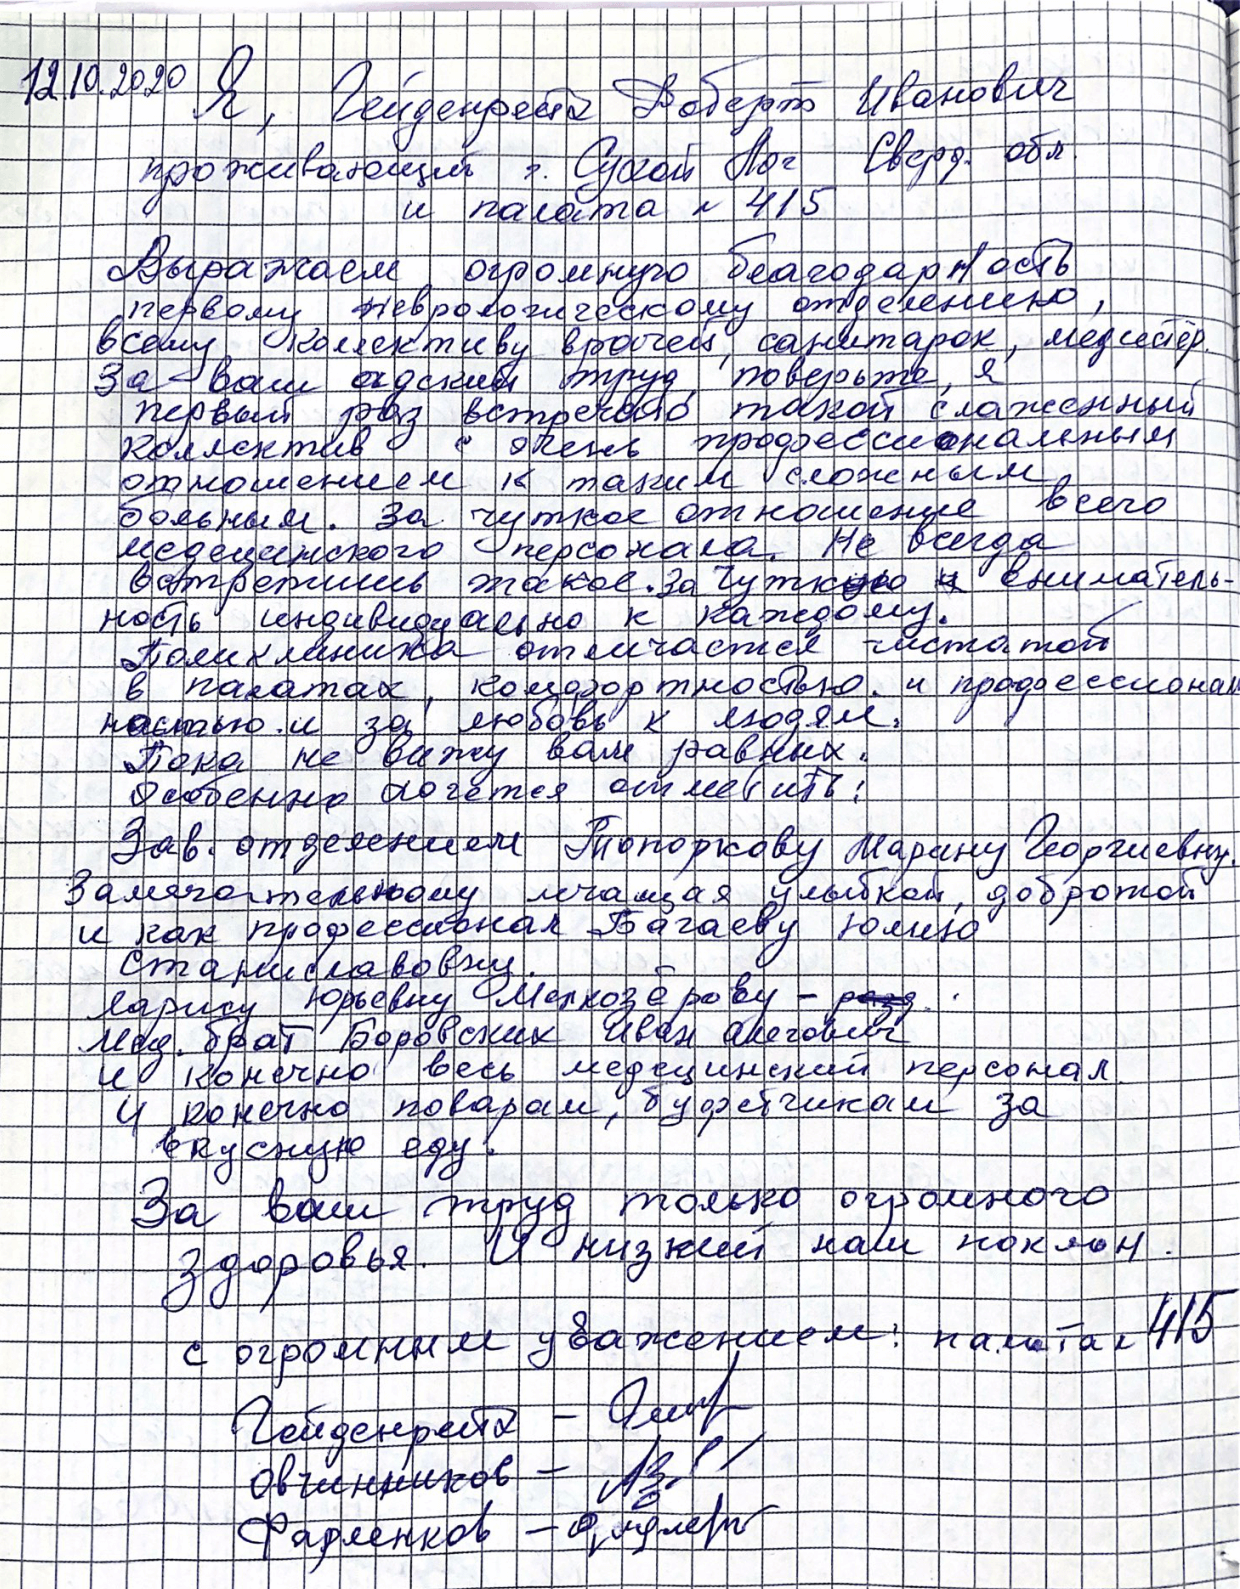 12.10.2020 Я, Гейденрейх Роберт Иванович
проживающий г. Сухой Лог Сверд. обл.
и палата № 415
Выражаем огромную благодарность
первому неврологическому отделению,
всему коллективу врачей, санитарок, медсестёр.
За ваш адский труд, поверьте, я
первый раз встречаю такой слаженный
коллектив с очень профессиональным
отношением к таким сложным
больным. За чуткое отношение всего
медецинского персонала. Не всегда
встретишь такое. За чуткую и вниматель-
ность индивидуально к каждому.
Поликлиника отличается чистатой
в палатах, комфортностью. и профессионал
ностью. и за любовь к людям.
Пока не вижу вам равных.
Особенно хочется отметить:
Зав. отделением Топоркову Марину Георгиевну.
Замечательному лучащая улыбкой, добротой
и как профессионал Багаеву Юлию
Станиславовну.
Ларису Юрьевну Мелкозёрову –
Мед. брат Боровских Иван Олегович
и конечно весь медецинский персонал.
И конечно поварам, буфетчикам за
вкусную еду.
За ваш труд только огромного
здоровья. И низкий наш поклон.
с огромным уважением: палата № 415
Гейденрейх –
Овчинников –
Фадленков –